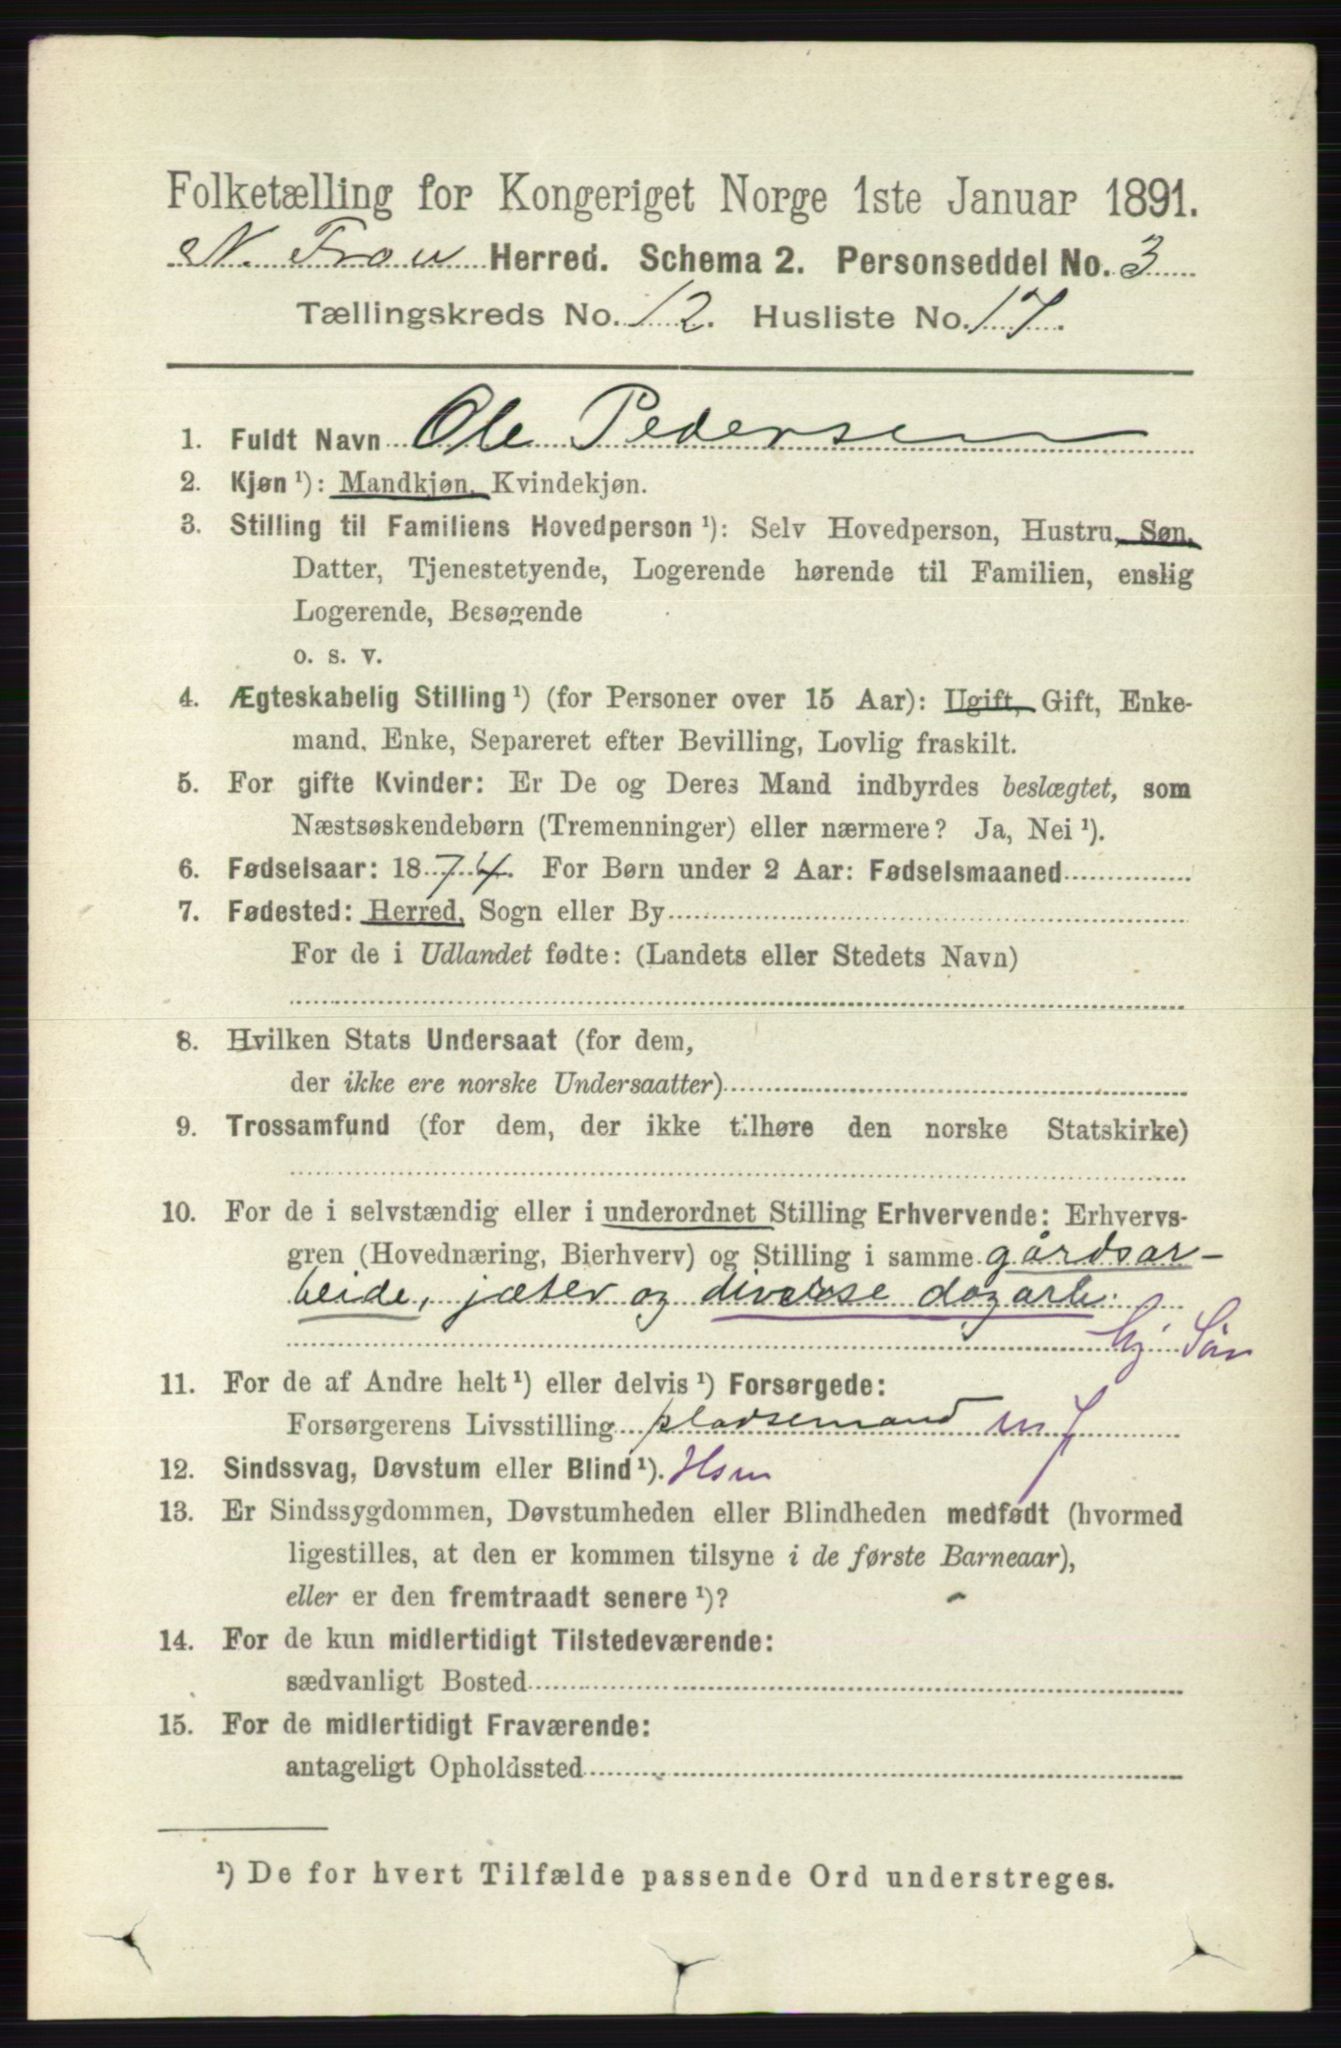 Folketælling for Kongeriget Norge 1ste Januar 1891.
N. Fron Herred. Schema 2. Personseddel No. 3
Tællingskreds No. 12. Husliste No. 17.
1. Fuldt Navn Ole Pedersen
2. Kjøn ¹): Mandkjøn, Kvindekjøn.
3. Stilling til Familiens Hovedperson ¹): Selv Hovedperson, Hustru, Søn,
Datter, Tjenestetyende, Logerende hørende til Familien, enslig
Logerende, Besøgende
o. s. v.
4. Ægteskabelig Stilling ¹) (for Personer over 15 Aar): Ugift, Gift, Enke-
mand, Enke, Separeret efter Bevilling, Lovlig fraskilt.
5. For gifte Kvinder: Er De og Deres Mand indbyrdes beslægtet, som
Næstsøskendebørn (Tremenninger) eller nærmere? Ja, Nei ¹).
6. Fødselsaar: 1874. For Børn under 2 Aar: Fødselsmaaned
7. Fødested: Herred, Sogn eller By
For de i Udlandet fødte: (Landets eller Stedets Navn)
8. Hvilken Stats Undersaat (for dem,
der ikke ere norske Undersaatter)
9. Trossamfund (for dem, der ikke tilhøre den norske Statskirke)
10. For de i selvstændig eller i underordnet Stilling Erhvervende: Erhvervs-
gren (Hovednæring, Bierhverv) og Stilling i samme gårdsar-
beide, jæter og diverse dagarb.
hj. Søn
11. For de af Andre helt ¹) eller delvis ¹) Forsørgede:
Forsørgerens Livsstilling pladsemand m J
12. Sindssvag, Døvstum eller Blind ¹). Hsm
13. Er Sindssygdommen, Døvstumheden eller Blindheden medfødt (hvormed
ligestilles, at den er kommen tilsyne i de første Barneaar),
eller er den fremtraadt senere ¹)? -
14. For de kun midlertidigt Tilstedeværende:
sædvanligt Bosted
15. For de midlertidigt Fraværende:
antageligt Opholdssted
¹) De for hvert Tilfælde passende Ord understreges.